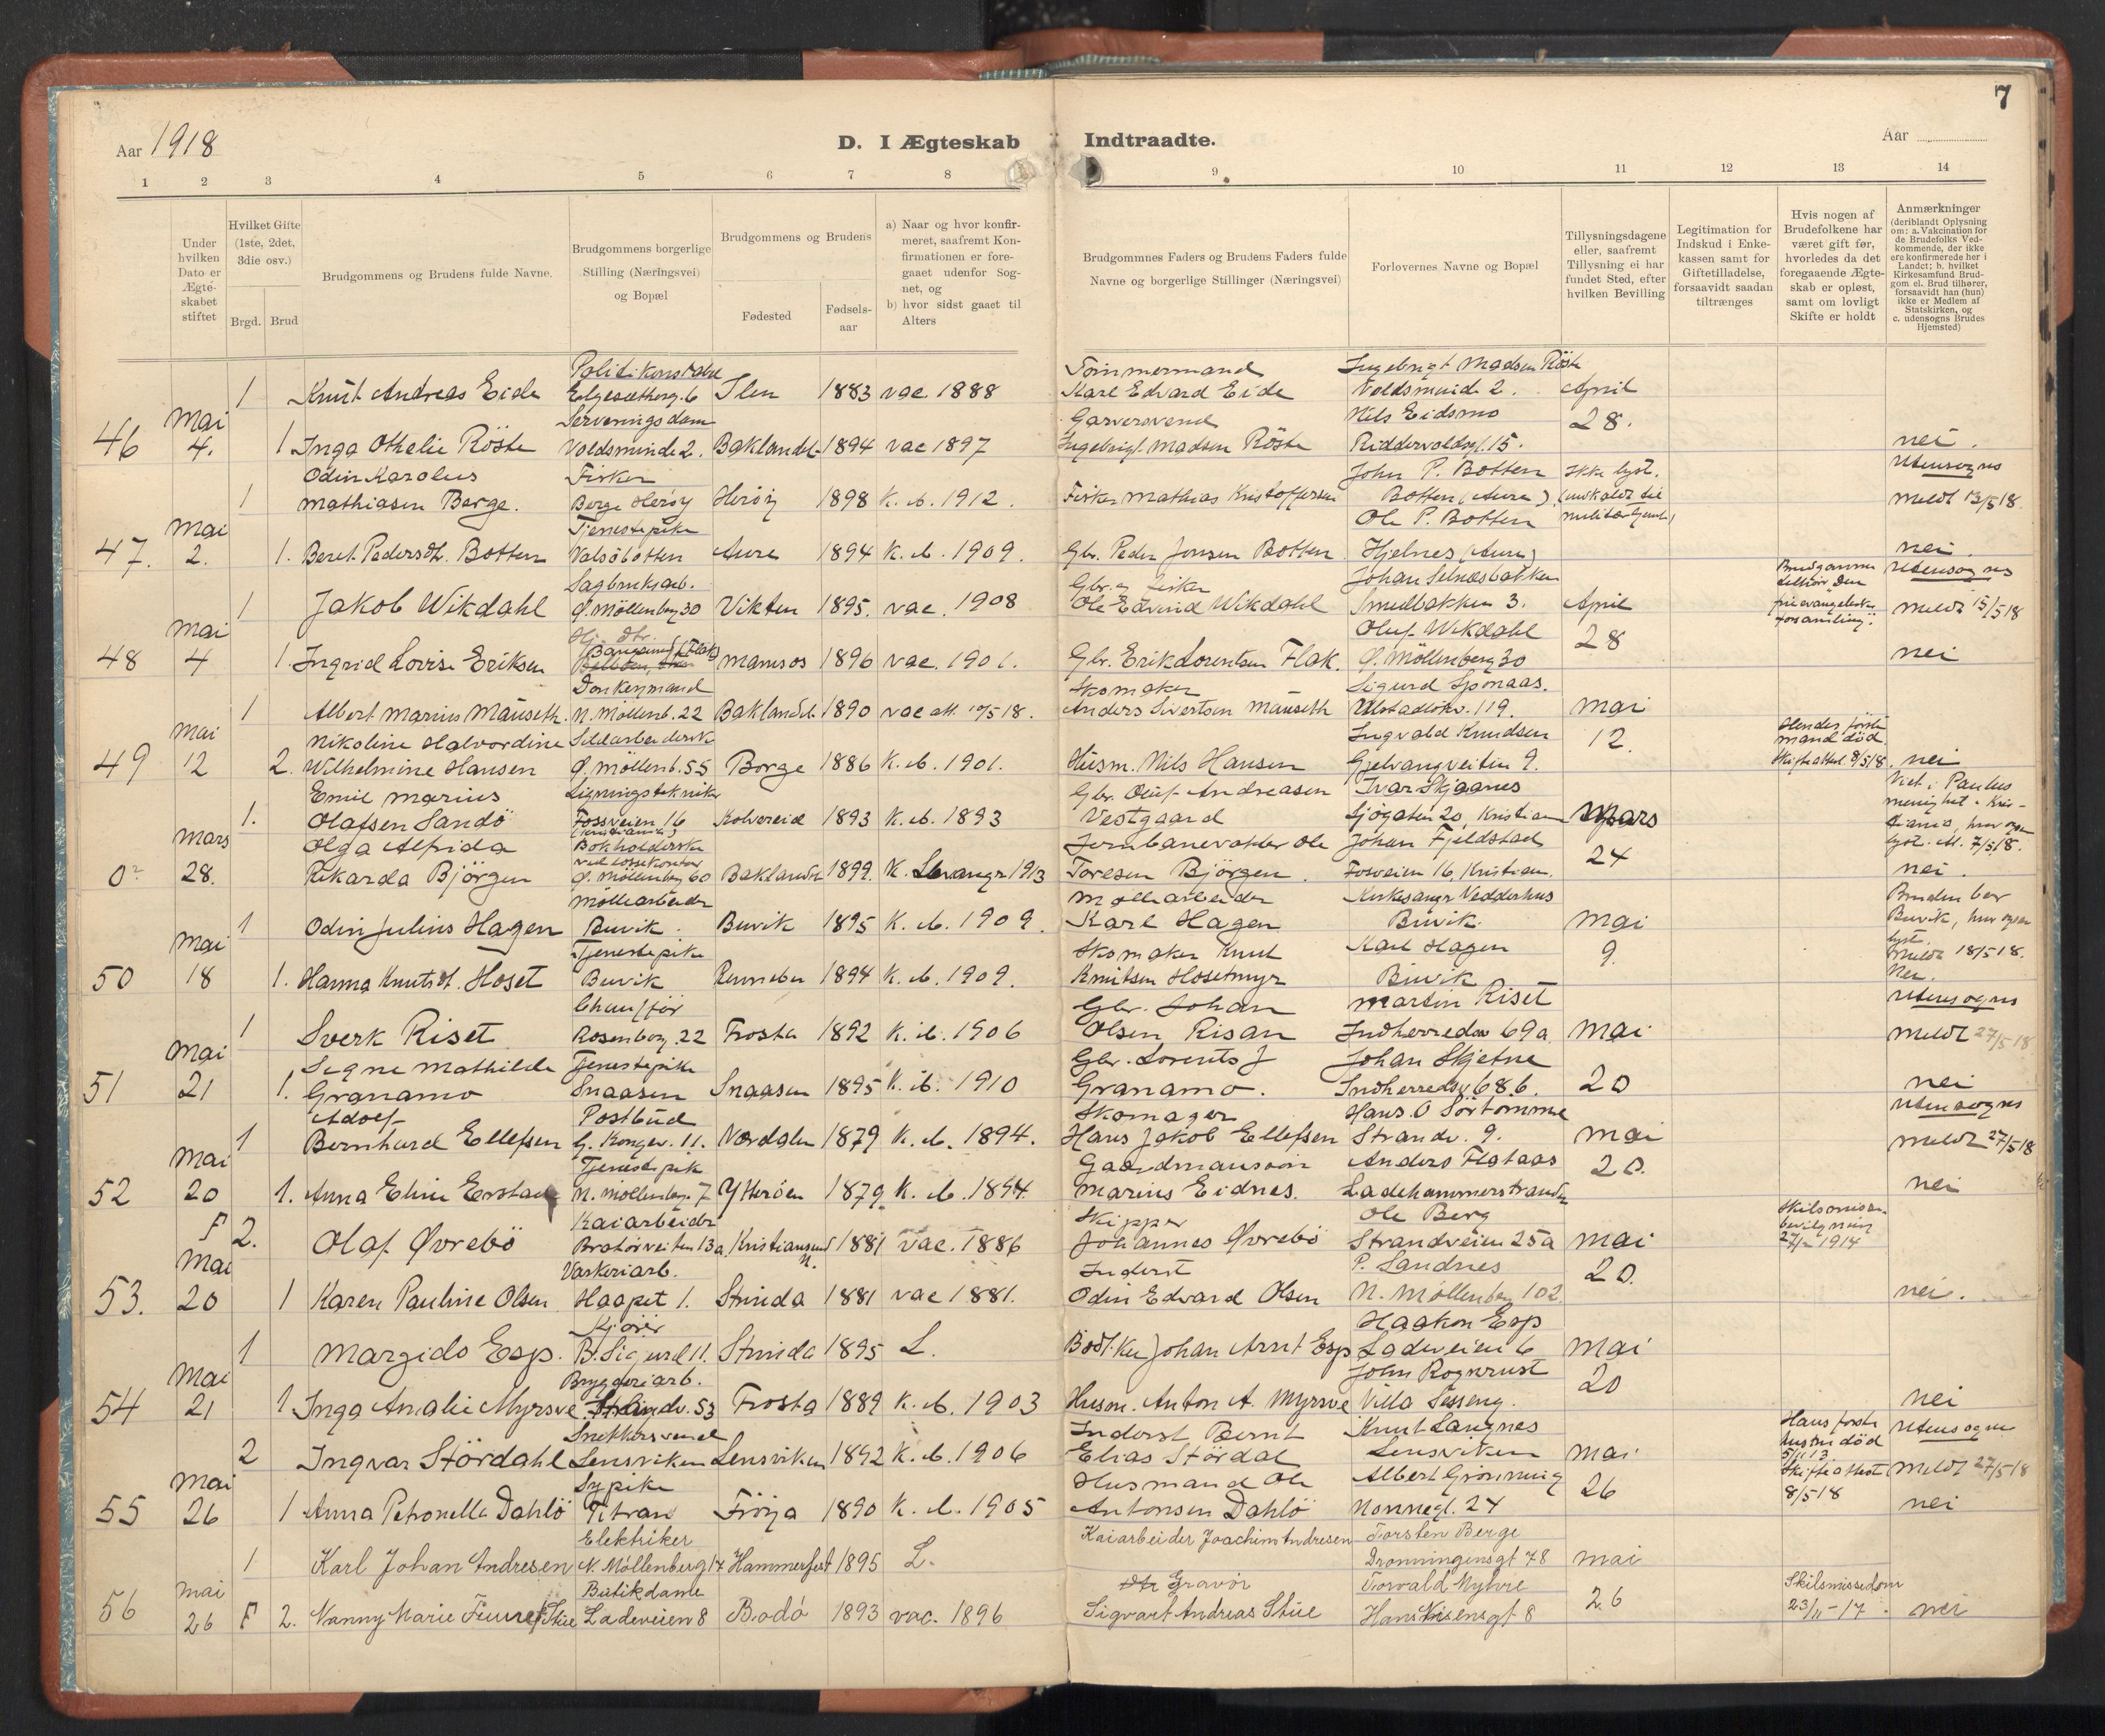 7
Aar 1918
D. I Ægteskab Indtraadte.
Aar
1 2 3 4 5 6 7 8 9 10 11 12 13 14
Under hvilken Dato er Ægteskabet stiftet
Hvilket Gifte (1ste, 2det, 3die osv.)
Brgd. Brud
Brudgommens og Brudens fulde Navne.
Brudgommens borgerlige Stilling (Næringsvei) og Bopæl
Brudgommens og Brudens
Fødested
Fødsels-aar
a) Naar og hvor konfirmeret, saafremt Konfirmationen er foregaaet udenfor Sognet, og
b) hvor sidst gaaet til Alters
Brudgommnes Faders og Brudens Faders fulde Navne og borgerlige Stillinger (Næringsvei)
Forlovernes Navne og Bopæl
Tillysningsdagene eller, saafremt Tillysning ei har fundet Sted, efter hvilken Bevilling
Legitimation for Indskud i Enkekassen samt for Giftetilladelse, forsaavidt saadan tiltrænges
Hvis nogen af Brudefolkene har været gift før, hvorledes da det foregaaende Ægteskab er opløst, samt om lovligt Skifte er holdt
Anmærkninger
(deriblandt Oplysning om: a. Vakcination for de Brudefolks Vedkommende, der ikke ere konfirmerede her i Landet; b. hvilket Kirkesamfund Brudgom el. Brud tilhører, forsaavidt han (hun) ikke er Medlem af Statskirken, og c. udensogns Brudes Hjemsted)
Politikonstabel Tömmermand Ingebrigt Madsen Röste
1 Knut Andreas Eide Elgesæterg. 6 Ilen 1883 vac. 1888 Karl Edvard Eide Voldsminde 2. April
Mai Serveringsdame Garversvend Nils Eidsmo 28.
46 4. 1 Inga Othelie Röste Voldsminde 2. Baklandet 1894 vac 1897 Ingebrigt Madsen Röste Riddervoldsgt. 15. nei.
Odin Karolus Fisker John P. Botten Ikke lyst. Utensogns
1 Mathiasen Berge. Berge Heröy Heröy 1898 K. M. 1912. Fisker Mathias Kristoffersen Botten (Aure) meldt 13/5 18.
Mai Tjenestepike Ole P. Botten
47. 2. 1. Beret Pedersdt. Botten Valsöbotten Aure 1894 K. M. 1909. Gbr. Peder Jonsen Botten Hjelnes (Aure) nei.
Sagbruksarb. Gbr. og Fisker Johan Selnæsbakken Brudgommen tilhör Den Utensogns
1 Jakob Wikdahl Ö. Möllenberg 30 Vikten 1895. vac. 1908 Ole Edvind Wikdahl Smedbakken 3. April frie evangeliske forsamling. meldt 15/5 18
Mai Oluf Wikdahl 28
48 4 1. Ingrid Lovise Eriksen Namsos 1896 vac. 1901. Gbr. Erik Lorentsen Flak. Ö. Möllenberg 30 nei
Donkeymand Skomaker Sigurd Sponaas.
1 Albert Marius Mauseth. N. Möllenb. 22 Baklandet 1890 vac att. 10/5 18. Anders Sivertsen Mauseth Ulstadlökv. 119. Mai
Mai Nikoline Halvordine Ingvald Knudsen 12. Hendes förste mand död
49 12 2. Wilhelmine Hansen Ö. Möllenb. 55 Borge 1886 K. M. 1901. Husm. Nils Hansen Gjelvangveiten 9. Skifteattest 8/5 18. nei
Emil Marius Ligningstekniker Gbr. Oluf Andreasen Ivar Skjaanes Viet i Paulus
1. Olafsen Sandö Fossveien 16 (Kristiania) Kolvereid 1893 K. M. 1893 Vestgaard Sjögaten 20, Kristian Mars menighet Kristiania, hvor ogsaa
Mars Olga Alfrida Bokholderske Jernbanevakter Ole Johan Fjeldstad 24 lyst. M. 7/5 18.
0 28. Rikarda Björgen Ö. Möllenberg 60 Baklandet 1892. K. Levanger 1913 Toresen Björgen. Fosveien 16, Kristian. nei.
Möllearbeider Möllearbeider Kirkesanger Vedderhus Bruden bor
1 Odin Julius Hagen Buvik. Buvik 1895 K. M. 1909. Karl Hagen Buvik. Mai Buvik, hvor ogsaa lyst.
Mai Tjenestepike Skomaker Knut Karl Hagen 9. Meldt 18/5 18.
50 18 1. Hanna Knutsdt. Hoset Buvik Rennebu 1894 K. M. 1909. Knutsen Hosetmyr Buvik Nei.
Chauffør Gbr. Johan Martin Riset Utensogns
1 Sverk Riset Rosenborg. 22 Frosta 1892 K. M. 1906 Olsen Risan Indherredsv 69a Mai meldt 27/5 18
Mai Signe Mathilde Tjenestepike Gbr. Lorents J Johan Skjetne
51 21 1. Granamo Snaasen Snaasen 1895 K. M. 1910 Granamo. Indherredsv 68 b. 20 nei
Adolf Postbud Skomager Hans O Sörtömme Utensogns
1 Bernhard Ellefsen G. Kongev. 11. Værdalen 1879 K. M. 1894. Hans Jakob Ellefsen Strandv. 9. Mai meldt 27/5 18
Mai Tjenestepik Gaardmandssön Anders Flataas 20.
52 20 1. Anna Eline Erstad N. Möllenberg. 7 Ytteröen 1879. K. M. 1894. Marius Eidnes. Ladehammerstranden nei
F 2. Olaf Øvrebö Kaiarbeider Bratörveiten 13a Kristiansund N. 1881 vac. 1886 Skipper Johannes Øvrebö Ole Berg Strandveien 25a Mai Skilsmissebevilgning 27/2 1914
Mai Væskeriarb. Inderst P. Sandnes 20.
53. 20 1 Karen Pauline Olsen Haapet 1. Strinda 1881 vac 1881. Odin Edvard Olsen N. Möllenberg 102. nei.
Kjörer Haakon Esp
1 Margido Esp. B. Sigurd 11. Strinda 1895 L. Bödker Johan Arnt Esp Ladeveien 6 Mai
Mai Bryggeriarb. John Rognrust 20
54 21 1 Inga Amalie Myrsve Strandv. 53 Frosta 1889 K. M. 1903 Husm. Anton A. Myrsve Villa Tesseng. nei
Snekkersvend Inderst Bernt Knut Langnes Hans förste hustru död Utensogns
2 Ingvar Stördahl Lensviken Lensviken 1892 K. M. 1906 Elias Stördal Lensviken Mai 5/11 13.
Mai Sypike Husmand Ole Albert Grönning 26 Skifteattest meldt 27/5 18
55 26 1 Anna Petronella Dahlö Titran Fröya 1890 K. M. 1905 Antonsen Dahlö Nonnegt. 24 8/5 18 nei
Elektriker Kaiarbeider Joachim Andresen Torsten Berge
1 Karl Johan Andresen N. Möllenberg 17 Hammerfest 1895 L. Dronningensgt 78 Mai
Mai Butikdame Gravör Torvald Myhre Skilsmissedom
56 26 F 2. Nanny Marie Finne f. Stue Ladeveien 8 Bodö 1893 vac. 1896 Sigvart Andreas Stue Hans Nisensgt 8 26 23/11-17. nei